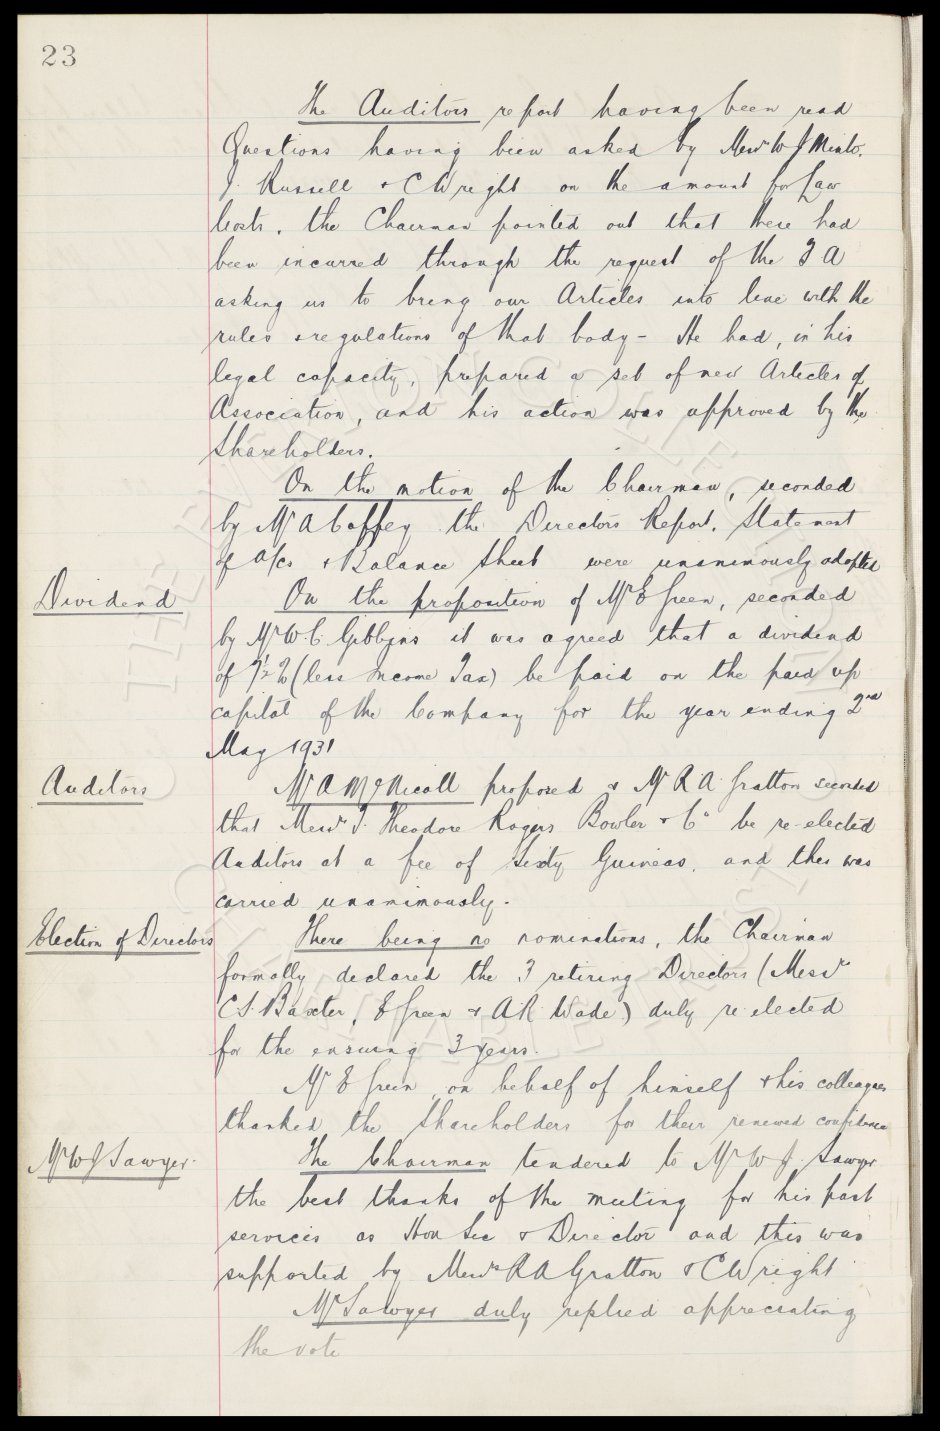 23
The Auditors report having been read
Questions having been asked by Messrs W J Minto.
J. Russell & C Wright on the amount for Law
Costs, the Chairman pointed out that these had
been incurred through the request of the F A
asking us to bring our Articles into line with the
rules & regulations of that body - He had, in his
legal capacity, prepared a set of new Articles of
Association, and his action was approved by the
Shareholders.
On the motion of the Chairman, seconded
by Mr A Coffey the Directors Report, Statement
of A/cs & Balance Sheet were unanimously adopted
Dividend
On the proposition of Mr E Green, seconded
by Mr W. C. Gibbins it was agreed that a dividend
of 7½ % (less Income Tax) be paid on the paid up
capital of the Company for the year ending 2nd
May 1931
Auditors
Mr A McNicoll proposed & Mr R A. Gratton seconded
that Messrs T. Theodore Rogers Bowler & Co be re-elected
Auditors at a fee of Sixty Guineas, and this was
carried unanimously.
Election of Directors
There being no nominations, the Chairman
formally declared the 3 retiring Directors (Messrs
C S. Baxter, E Green & A R. Wade) duly re-elected
for the ensuing 3 years.
Mr E Green, on behalf of himself & his colleagues
thanked the Shareholders for their renewed confidence
Mr W J Sawyer.
The Chairman tendered to Mr W J. Sawyer
the best thanks of the meeting for his past
services as Hon Sec & Director and this was
supported by Messrs R A Gratton & C Wright
Mr Sawyer duly replied appreciating
the vote